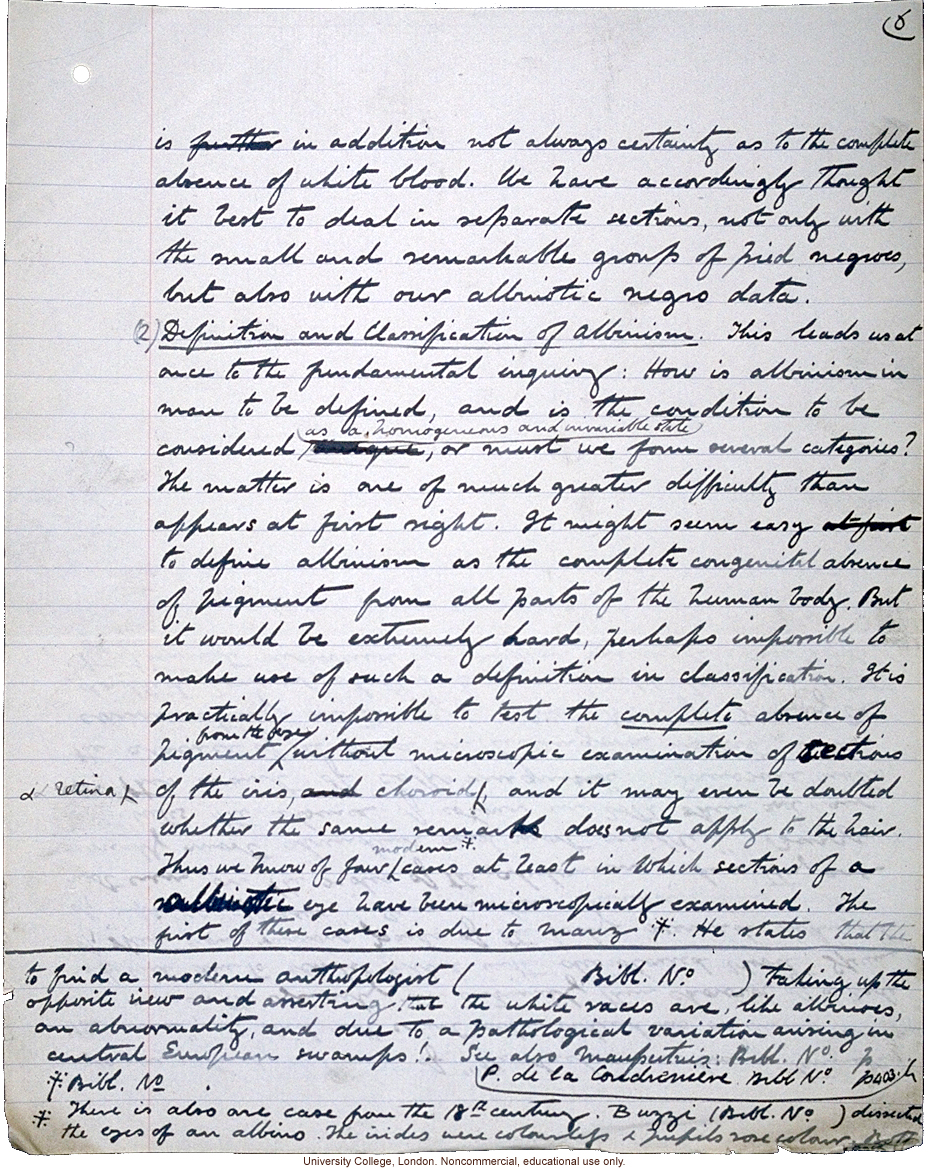 6
is further in addition not always certainty as to the complete
absence of white blood. We have accordingly thought
it best to deal in separate sections, not only with
the small and remarkable group of pied negroes,
but also with our albinotic negro data.
(2) Definition and Classification of Albinism. This leads us at
once to the fundamental inquiry: How is albinism in
man to be defined, and is the condition to be
as a homogeneous and invariable state
considered unique, or must we form several categories?
The matter is one of much greater difficulty than
appears at first sight. It might seem easy at first
to define albinism as the complete congenital absence
of pigment from all parts of the human body. But
it would be extremely hard, perhaps impossible to
make use of such a definition in classification. It is
practically impossible to test the complete absence of
from the eye
pigment without microscopic examination of sections
retina
of the iris, and choroid, and it may even be doubted
whether the same remark does not apply to the hair.
modern *
Thus we know of four cases at least in which sections of a
albinotic eye have been microscopically examined. The
first of these cases is due to Manz *. He states that the
to find a modern anthropologist ( Bibl. No ) taking up the
opposite view and asserting that the white races are, like albinoes,
an abnormality, and due to a pathological variation arising in
central European swamps! See also Maupertuis: Bibl. No. p
* Bibl. No . P. de la Coudrenière Bibl No p403
* There is also one case from the 18th century. Buzzi (Bibl. No ) dissected
the eyes of an albino. The irides were colourless & pupils rose colour.
University College, London. Noncommercial, educational use only.